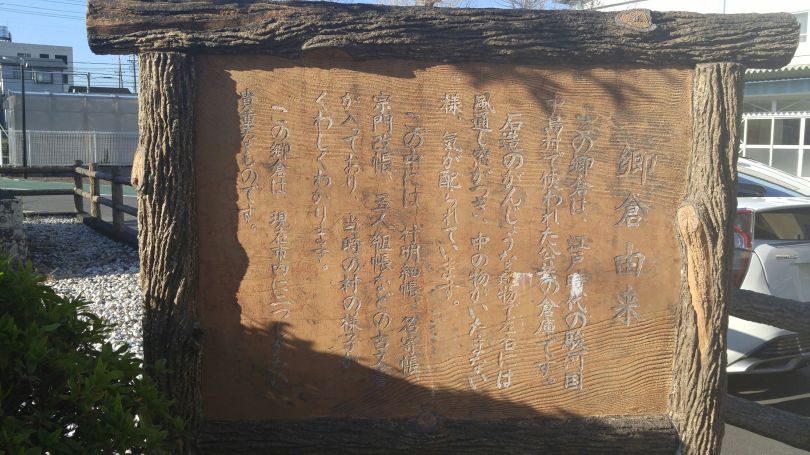 郷倉由来
この郷倉は、江戸時代の駿河国
中島村で使われた公共の倉庫です。
石造のがんじょうな建物で左右には
風通し窓がつき、中の物がいたまない
様、気が配られています。
この中には、村明細帳、名寄帳
宗門改帳、五人組帳などの古文書
が入っており、当時の村の様子が
くわしくわかります。
この郷倉は、現在市内に二つ
貴重なものです。